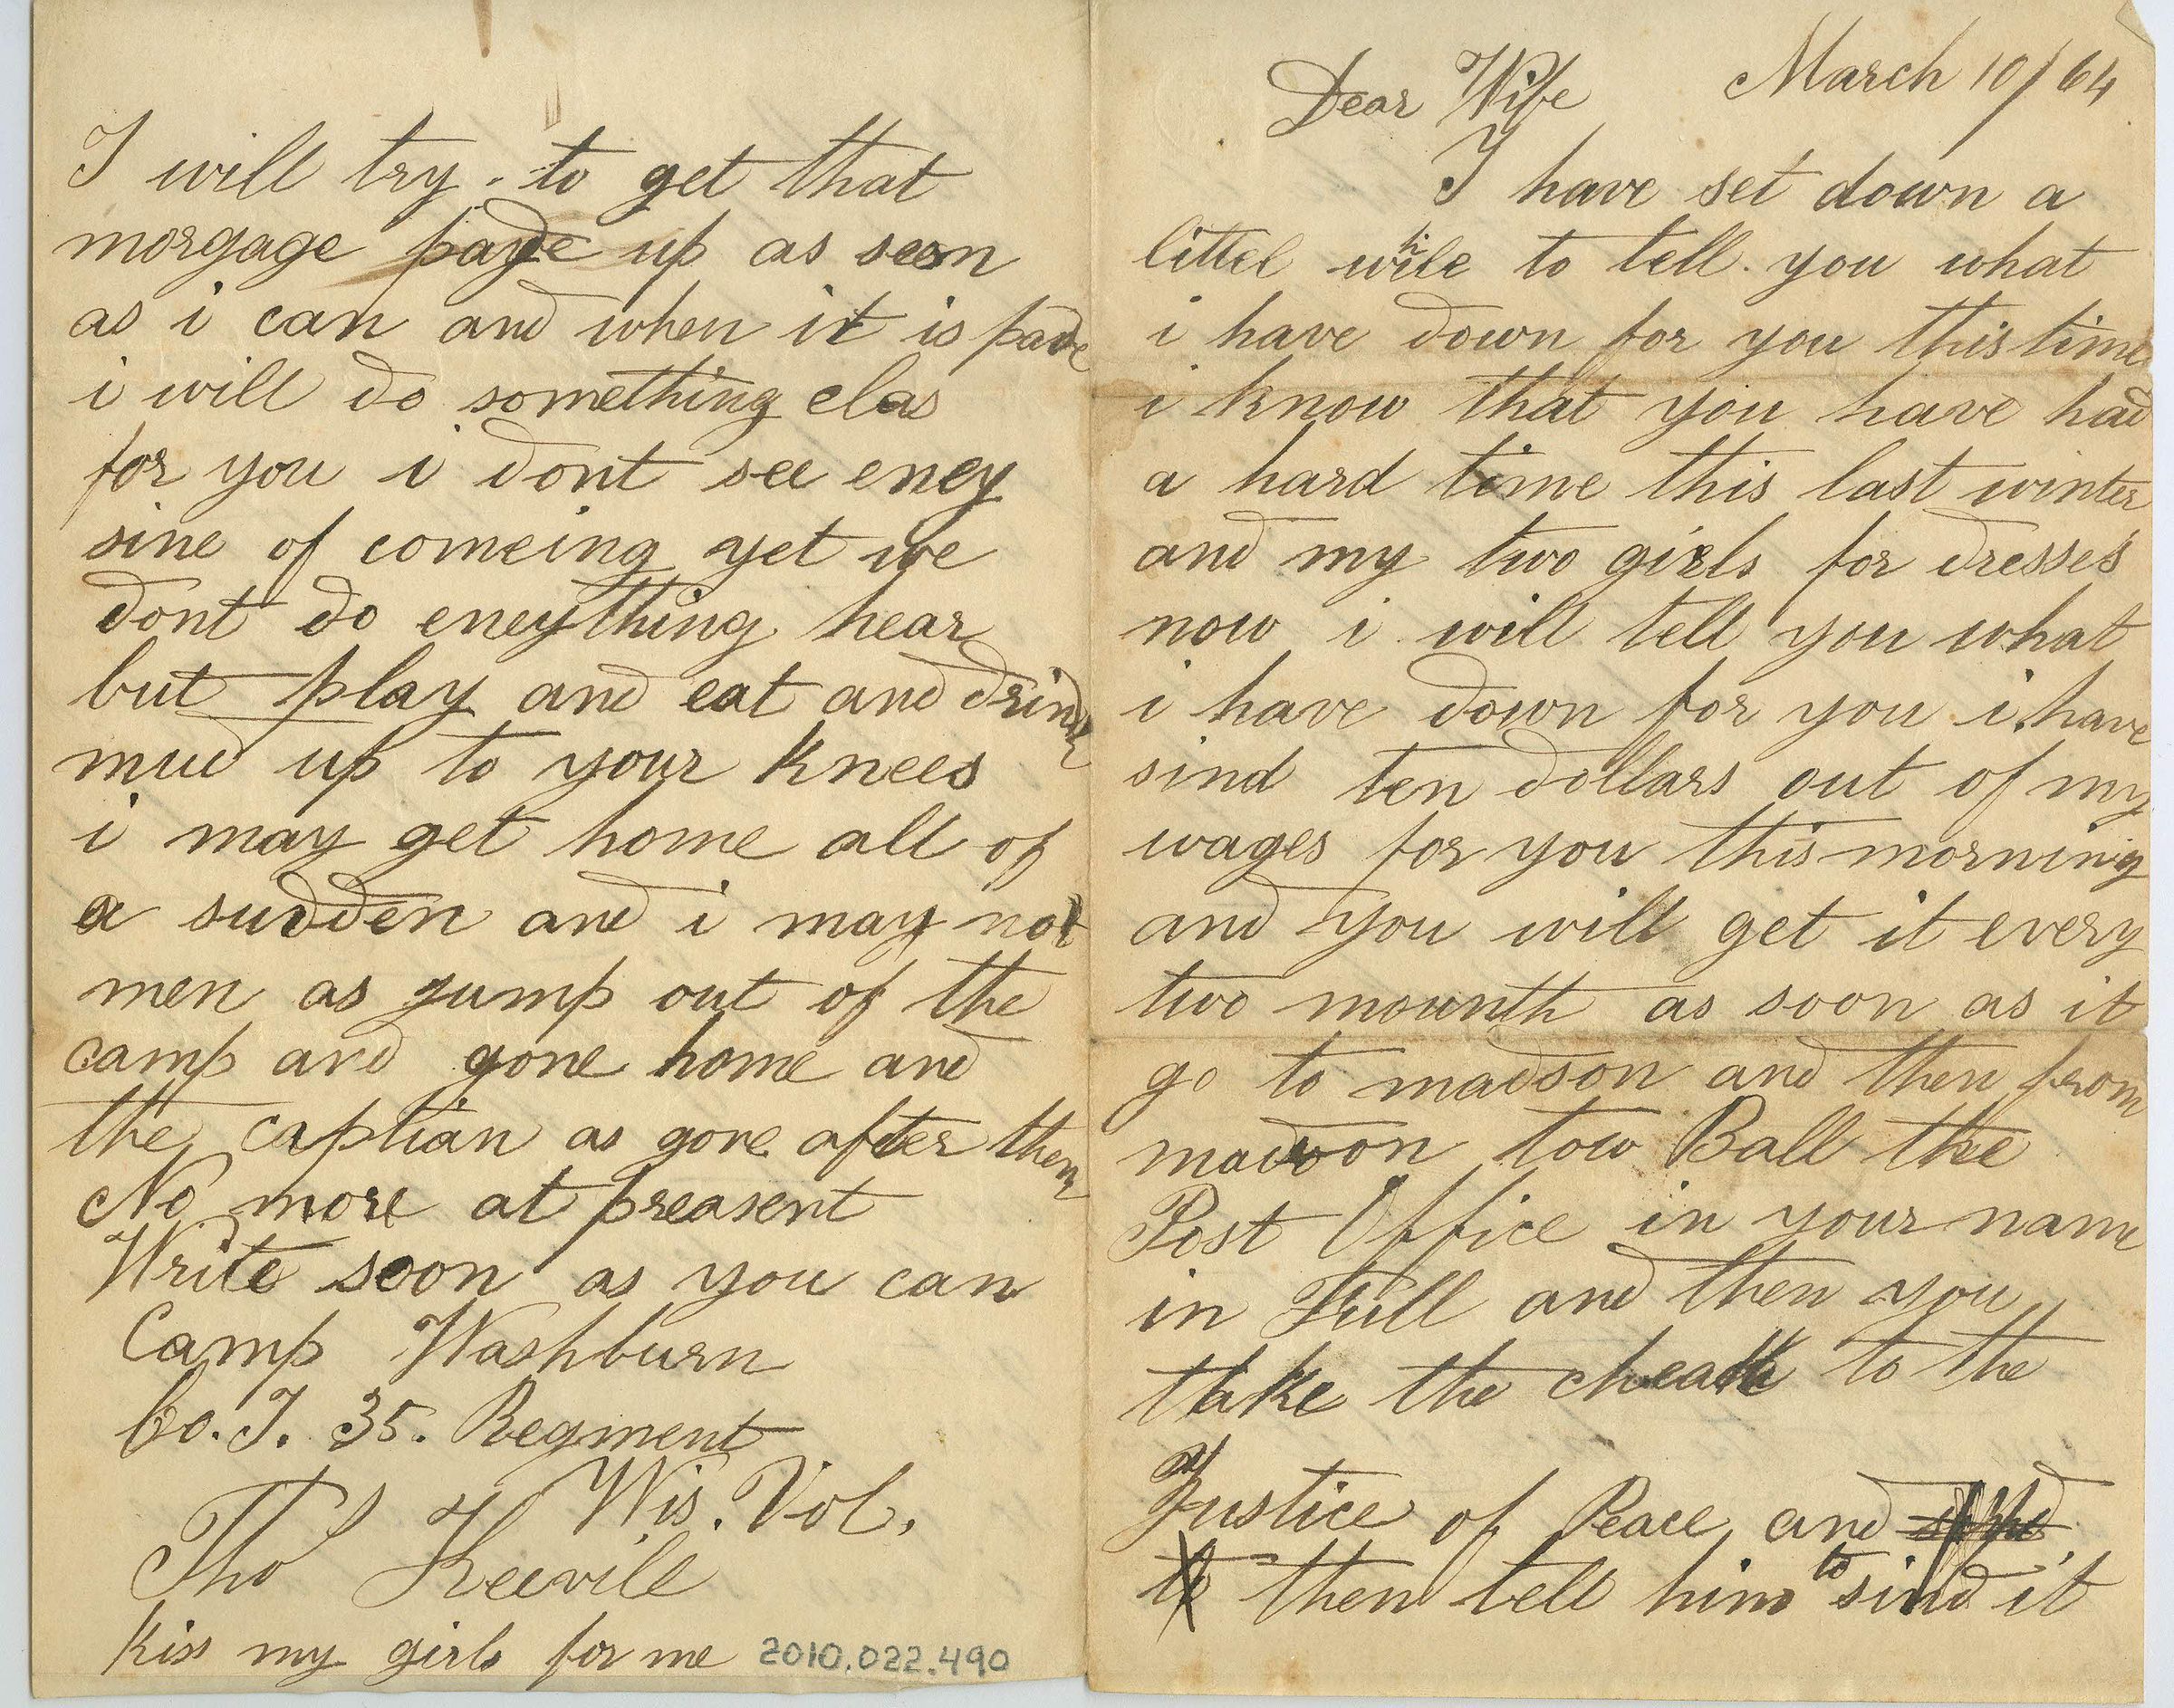 Dear Wife March 10/64
I have set down a
littel while to tell you what
i have down for you this time
i know that you have had
a hard time this last winter
and my two girls for dresses
now i will tell you what
i have down for you i have
sind ten dollars out of my
wages for you this morning
and you will get it every
two mounth as soon as it
go to madson and then from
madson tow Ball the
Post Office in your name
in Full and then you
take the cheack to the
Justice of Peace and
then tell him to sind it
I will try to get that
morgage paye up as soon
as i can and when it is pade
i will do something elas
for you i dont see eney
sine of comeing yet we
dont do eneything hear
but play and eat and drink
mud up to your knees
i may get home all of
a sudden and i may not
men as jump out of the
camp and gone home and
the captian as gone after them
No more at preasent
Write soon as you can
Camp Washburn
Co. I. 35. Regment
Wis. Vol.
Thos Keevill
Kiss my girls for me 2010.022.490